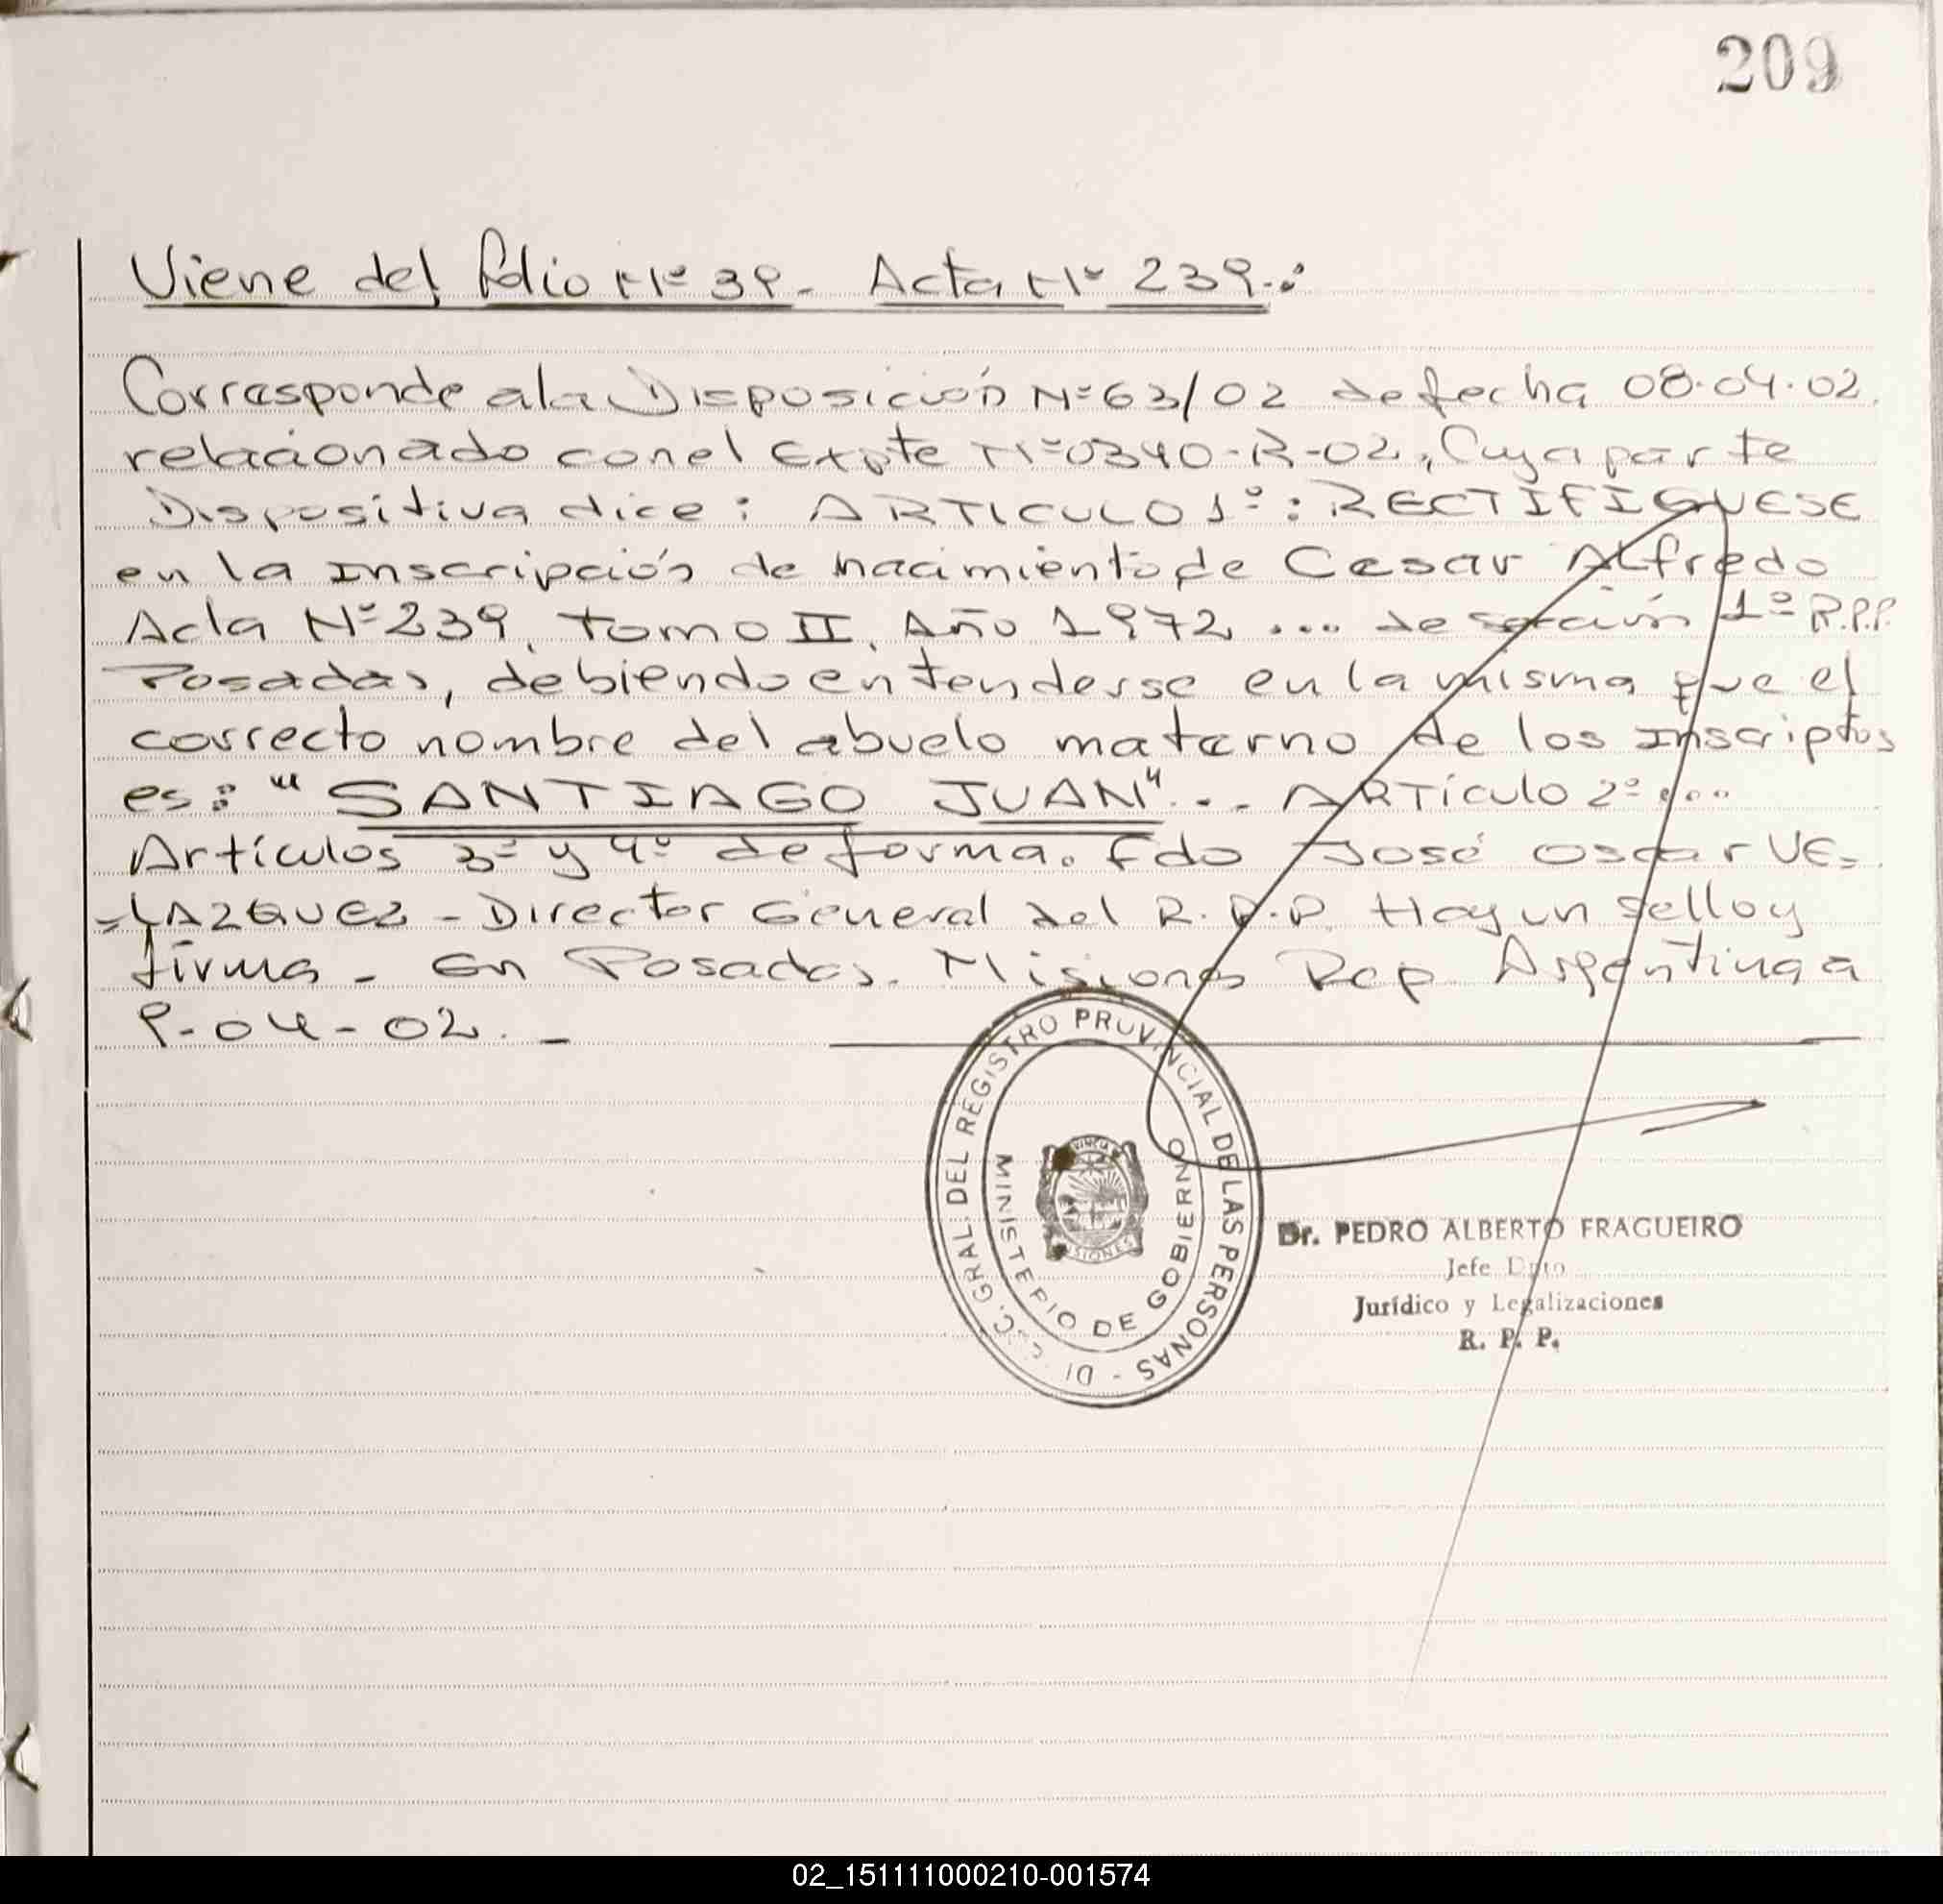 209
Viene del folio Nº 39. Acta Nº 239.:
Corresponde a la Disposición Nº 63/02 de fecha 08.04.02.
relacionado con el Expte Nº 0340-R-02, Cuya parte
Dispositiva dice: ARTICULO 1º: RECTIFIQUESE
en la Inscripción de nacimiento de Cesar Alfredo
Acta Nº 239, tomo II, Año 1972 ... de sección 1º R.P.P.
Posadas, debiendo entenderse en la misma que el
correcto nombre del abuelo materno de los Inscriptos
es: "SANTIAGO JUAN"... ARTículo 2º ...
Artículos 3º y 4º de forma. Fdo José Oscar VE=
=LAZQUEZ - Director General del R.P.P. Hay un sello y
firma - En Posadas. Misiones Rep. Argentina a
9-04-02. -
DEL REGISTRO PROVINCIAL DE LAS PERSONAS -
MINISTERIO DE GOBIERNO
Dr. PEDRO ALBERTO FRAGUEIRO
Jefe Dpto
Jurídico y Legalizaciones
R. P. P.
02_151111000210-001574